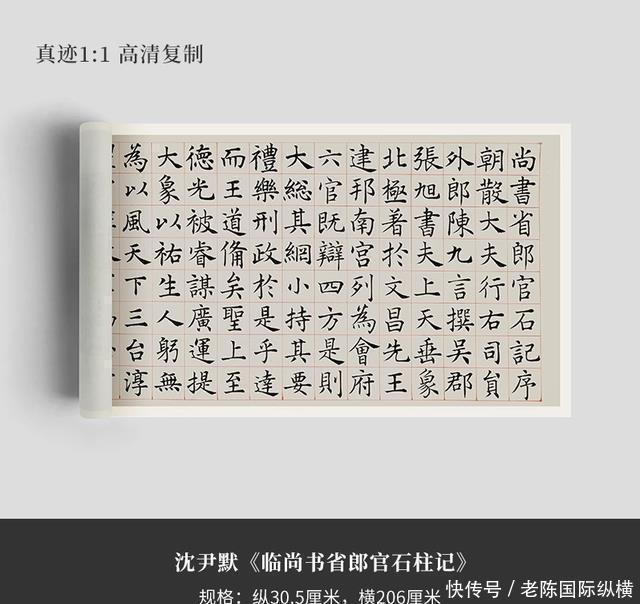 真迹1:1 高清复制
尚書省郎官石記序
朝散大夫行右司貟
外郎陳九言撰吴郡
張旭書夫上天垂象
北極著於文昌先王
建邦南宫列為會府
六官既辯四方是則
大総其綱小持其要
禮樂刑政於是乎達
而王道俻矣聖上至
德光被睿謀廣運提
大象以祐生人躬無
為以風天下三台淳
沈尹默《临尚书省郎官石柱记》
规格：纵30.5厘米，横206厘米
快传号 / 老陈国际纵横